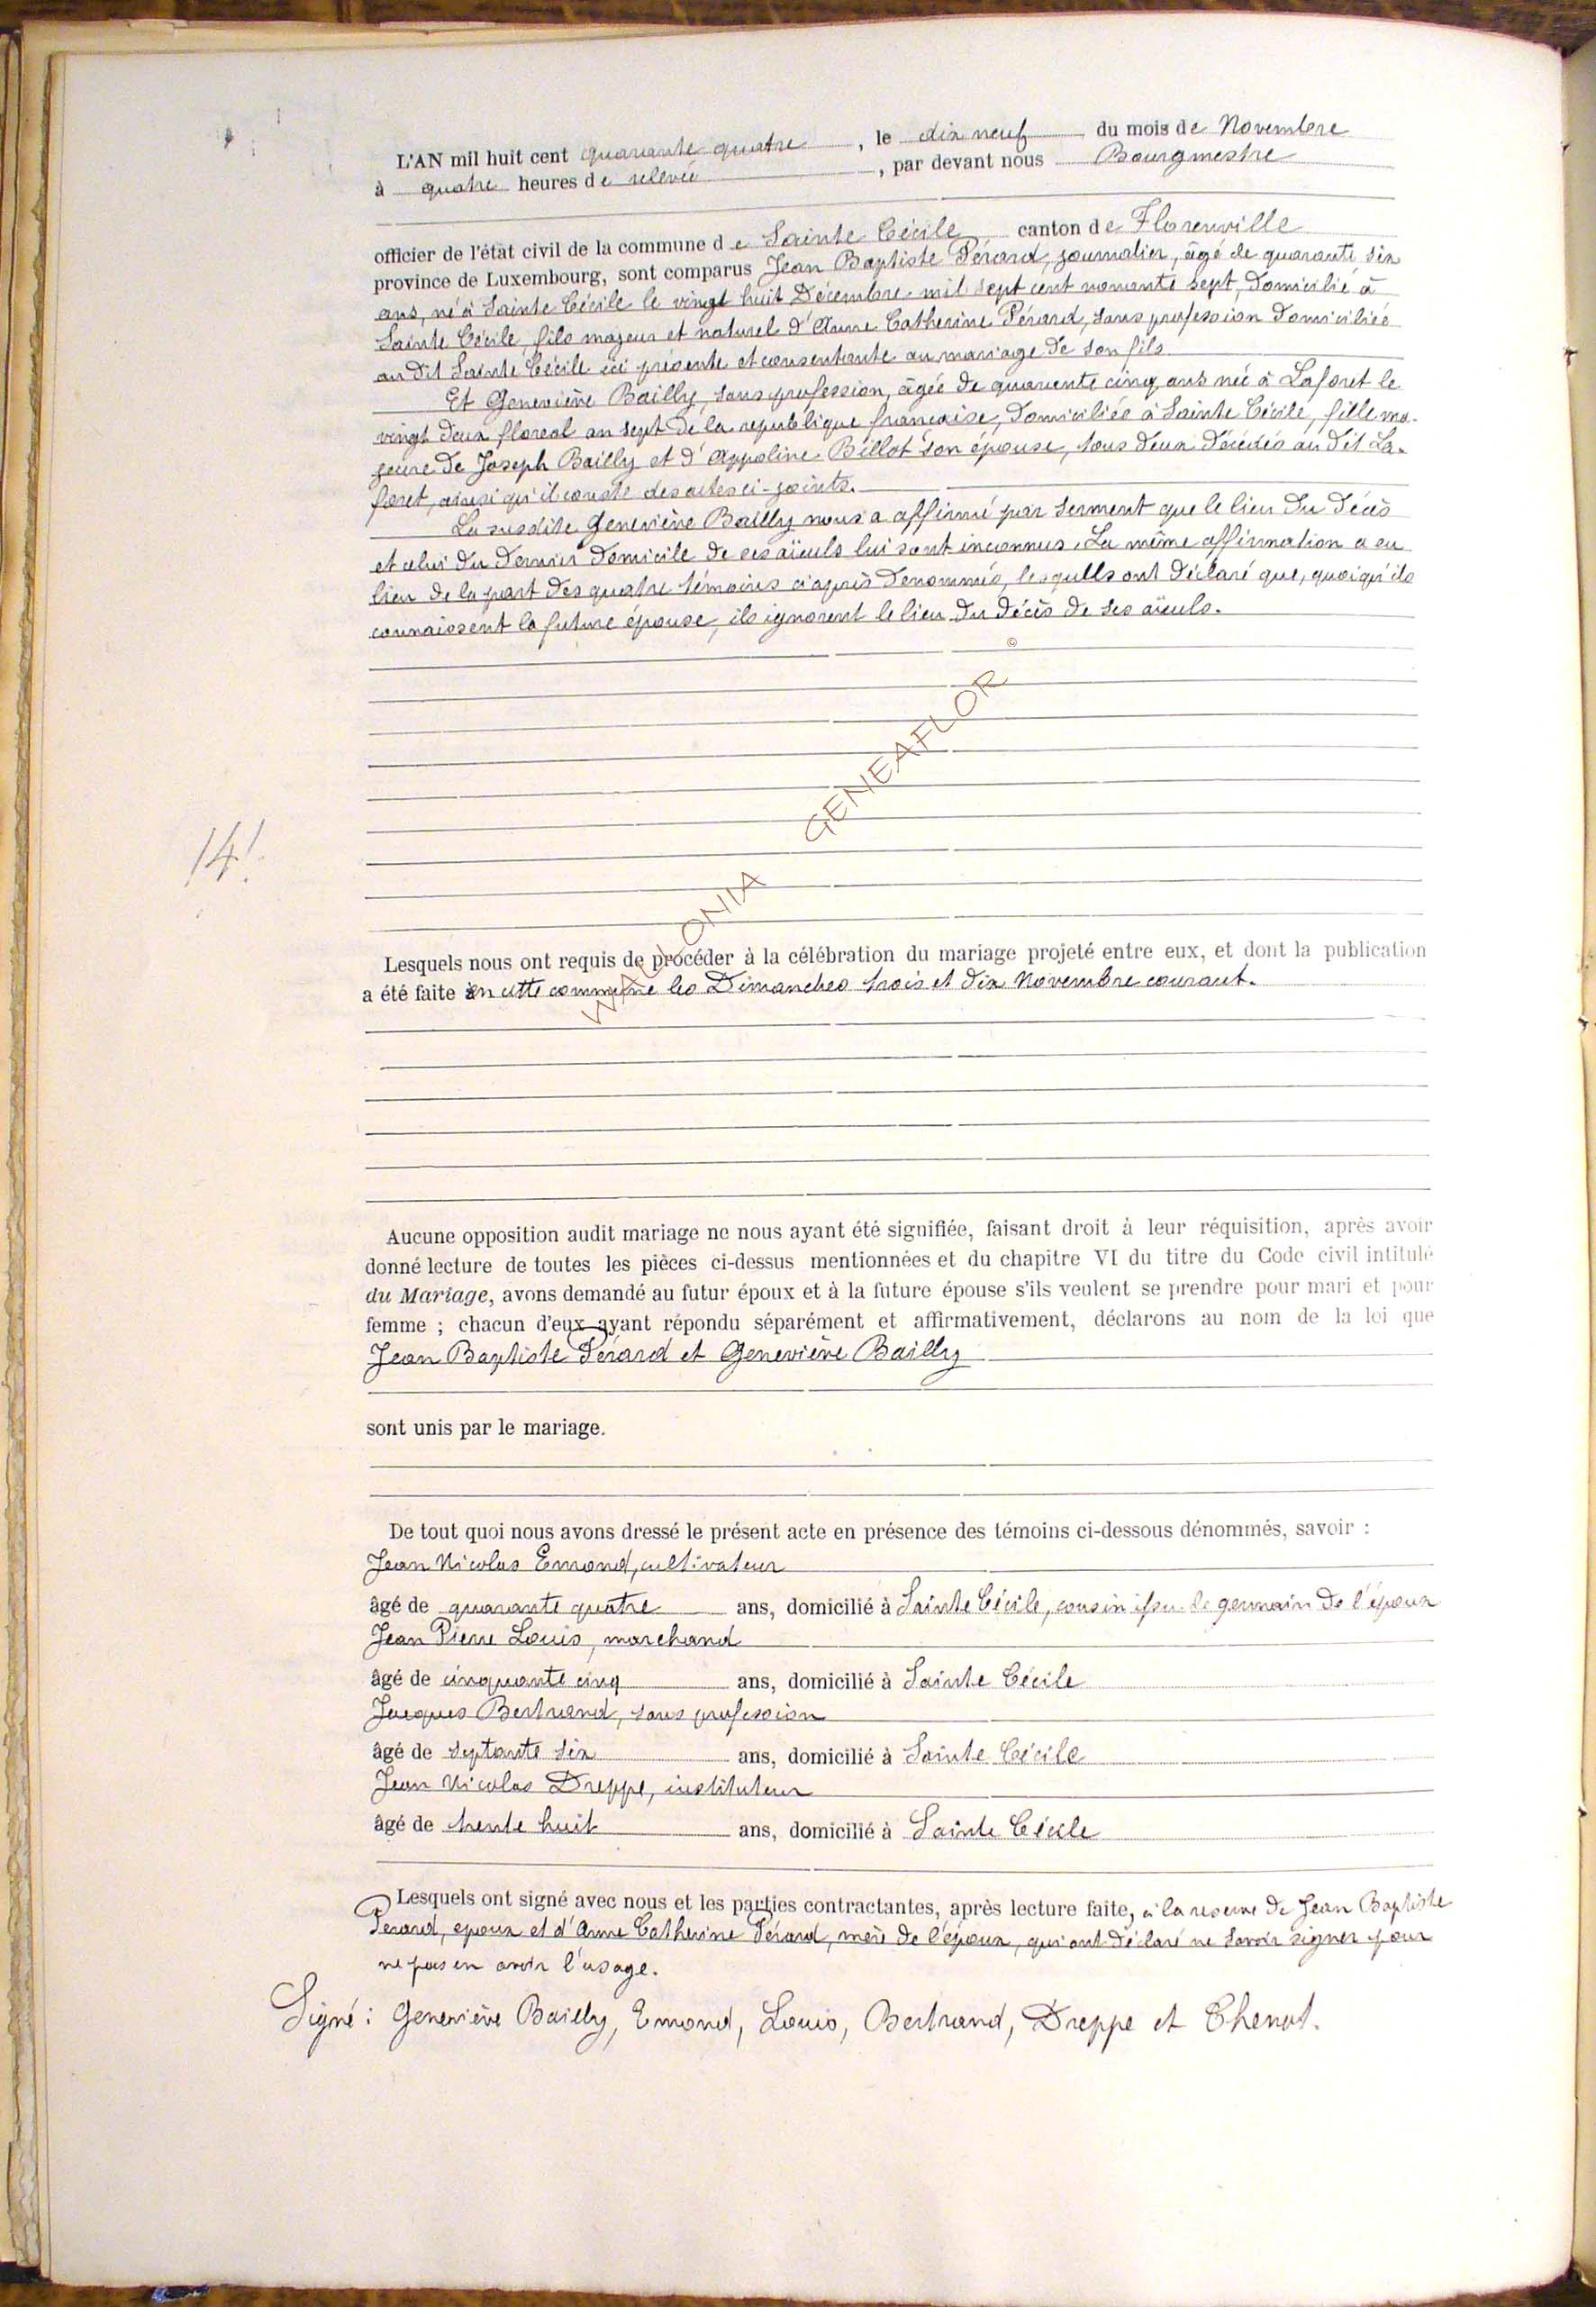 L'AN mil huit cent quarante quatre, le dix neuf du mois de Novembre
à quatre heures de relevée, par devant nous Bourgmestre
officier de l'état civil de la commune de Sainte Cécile canton de Florenville
province de Luxembourg, sont comparus Jean Baptiste Pérard, journalier, âgé de quarante six
ans, né à Sainte Cécile le vingt huit Décembre mil sept cent nonante sept, domicilié à
Sainte Cécile, fils majeur et naturel d'Anne Catherine Pérard, sans profession domiciliée
au dit Sainte Cécile ici présente et consentante au mariage de son fils
Et Geneviève Bailly, sans profession, âgée de quarante cinq ans née à Laforet le
vingt deux floreal an sept de la republique française, domiciliée à Sainte Cécile, fille ma-
jeure de Joseph Bailly et d'Appoline Billot son épouse, tous deux décédés au dit La-
foret, ainsi qu'il conste des actes ci-joints.
La susdite Geneviève Bailly nous a affirmé par serment que le lieu du décès
et celui du dernier domicile de ses aïeuls lui sont inconnus. La même affirmation a eu
lieu de la part des quatre témoins ci après denommés, lesquells ont déclaré que, quoiqu'ils
connaissent la future épouse, ils ignorent le lieu du décès de ses aïeuls.
WALLONIA GENEAFLOR ©
14!
Lesquels nous ont requis de procéder à la célébration du mariage projeté entre eux, et dont la publication
a été faite en cette commune les Dimanches trois et dix Novembre courant.
Aucune opposition audit mariage ne nous ayant été signifiée, faisant droit à leur réquisition, après avoir
donné lecture de toutes les pièces ci-dessus mentionnées et du chapitre VI du titre du Code civil intitulé
du Mariage, avons demandé au futur époux et à la future épouse s'ils veulent se prendre pour mari et pour
femme ; chacun d'eux ayant répondu séparément et affirmativement, déclarons au nom de la loi que
Jean Baptiste Pérard et Geneviève Bailly
sont unis par le mariage.
De tout quoi nous avons dressé le présent acte en présence des témoins ci-dessous dénommés, savoir :
Jean Nicolas Emond, cultivateur
âgé de quarante quatre ans, domicilié à Sainte Cécile, cousin issu de germain de l'époux
Jean Pierre Louis, marchand
âgé de cinquante cinq ans, domicilié à Sainte Cécile
Jacques Bertrand, sans profession
âgé de septante six ans, domicilié à Sainte Cécile
Jean Nicolas Dreppe, instituteur
âgé de trente huit ans, domicilié à Sainte Cécile
Lesquels ont signé avec nous et les parties contractantes, après lecture faite, à la reserve de Jean Baptiste
Perard, epoux et d'Anne Catherine Pérard, mère de l'époux, qui ont déclaré ne savoir signer pour
ne pas en avoir l'usage.
Signé : Geneviève Bailly, Emond, Louis, Bertrand, Dreppe et Thenot.